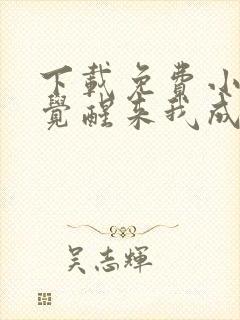 下載免費小
覺醒来我成
吴志輝